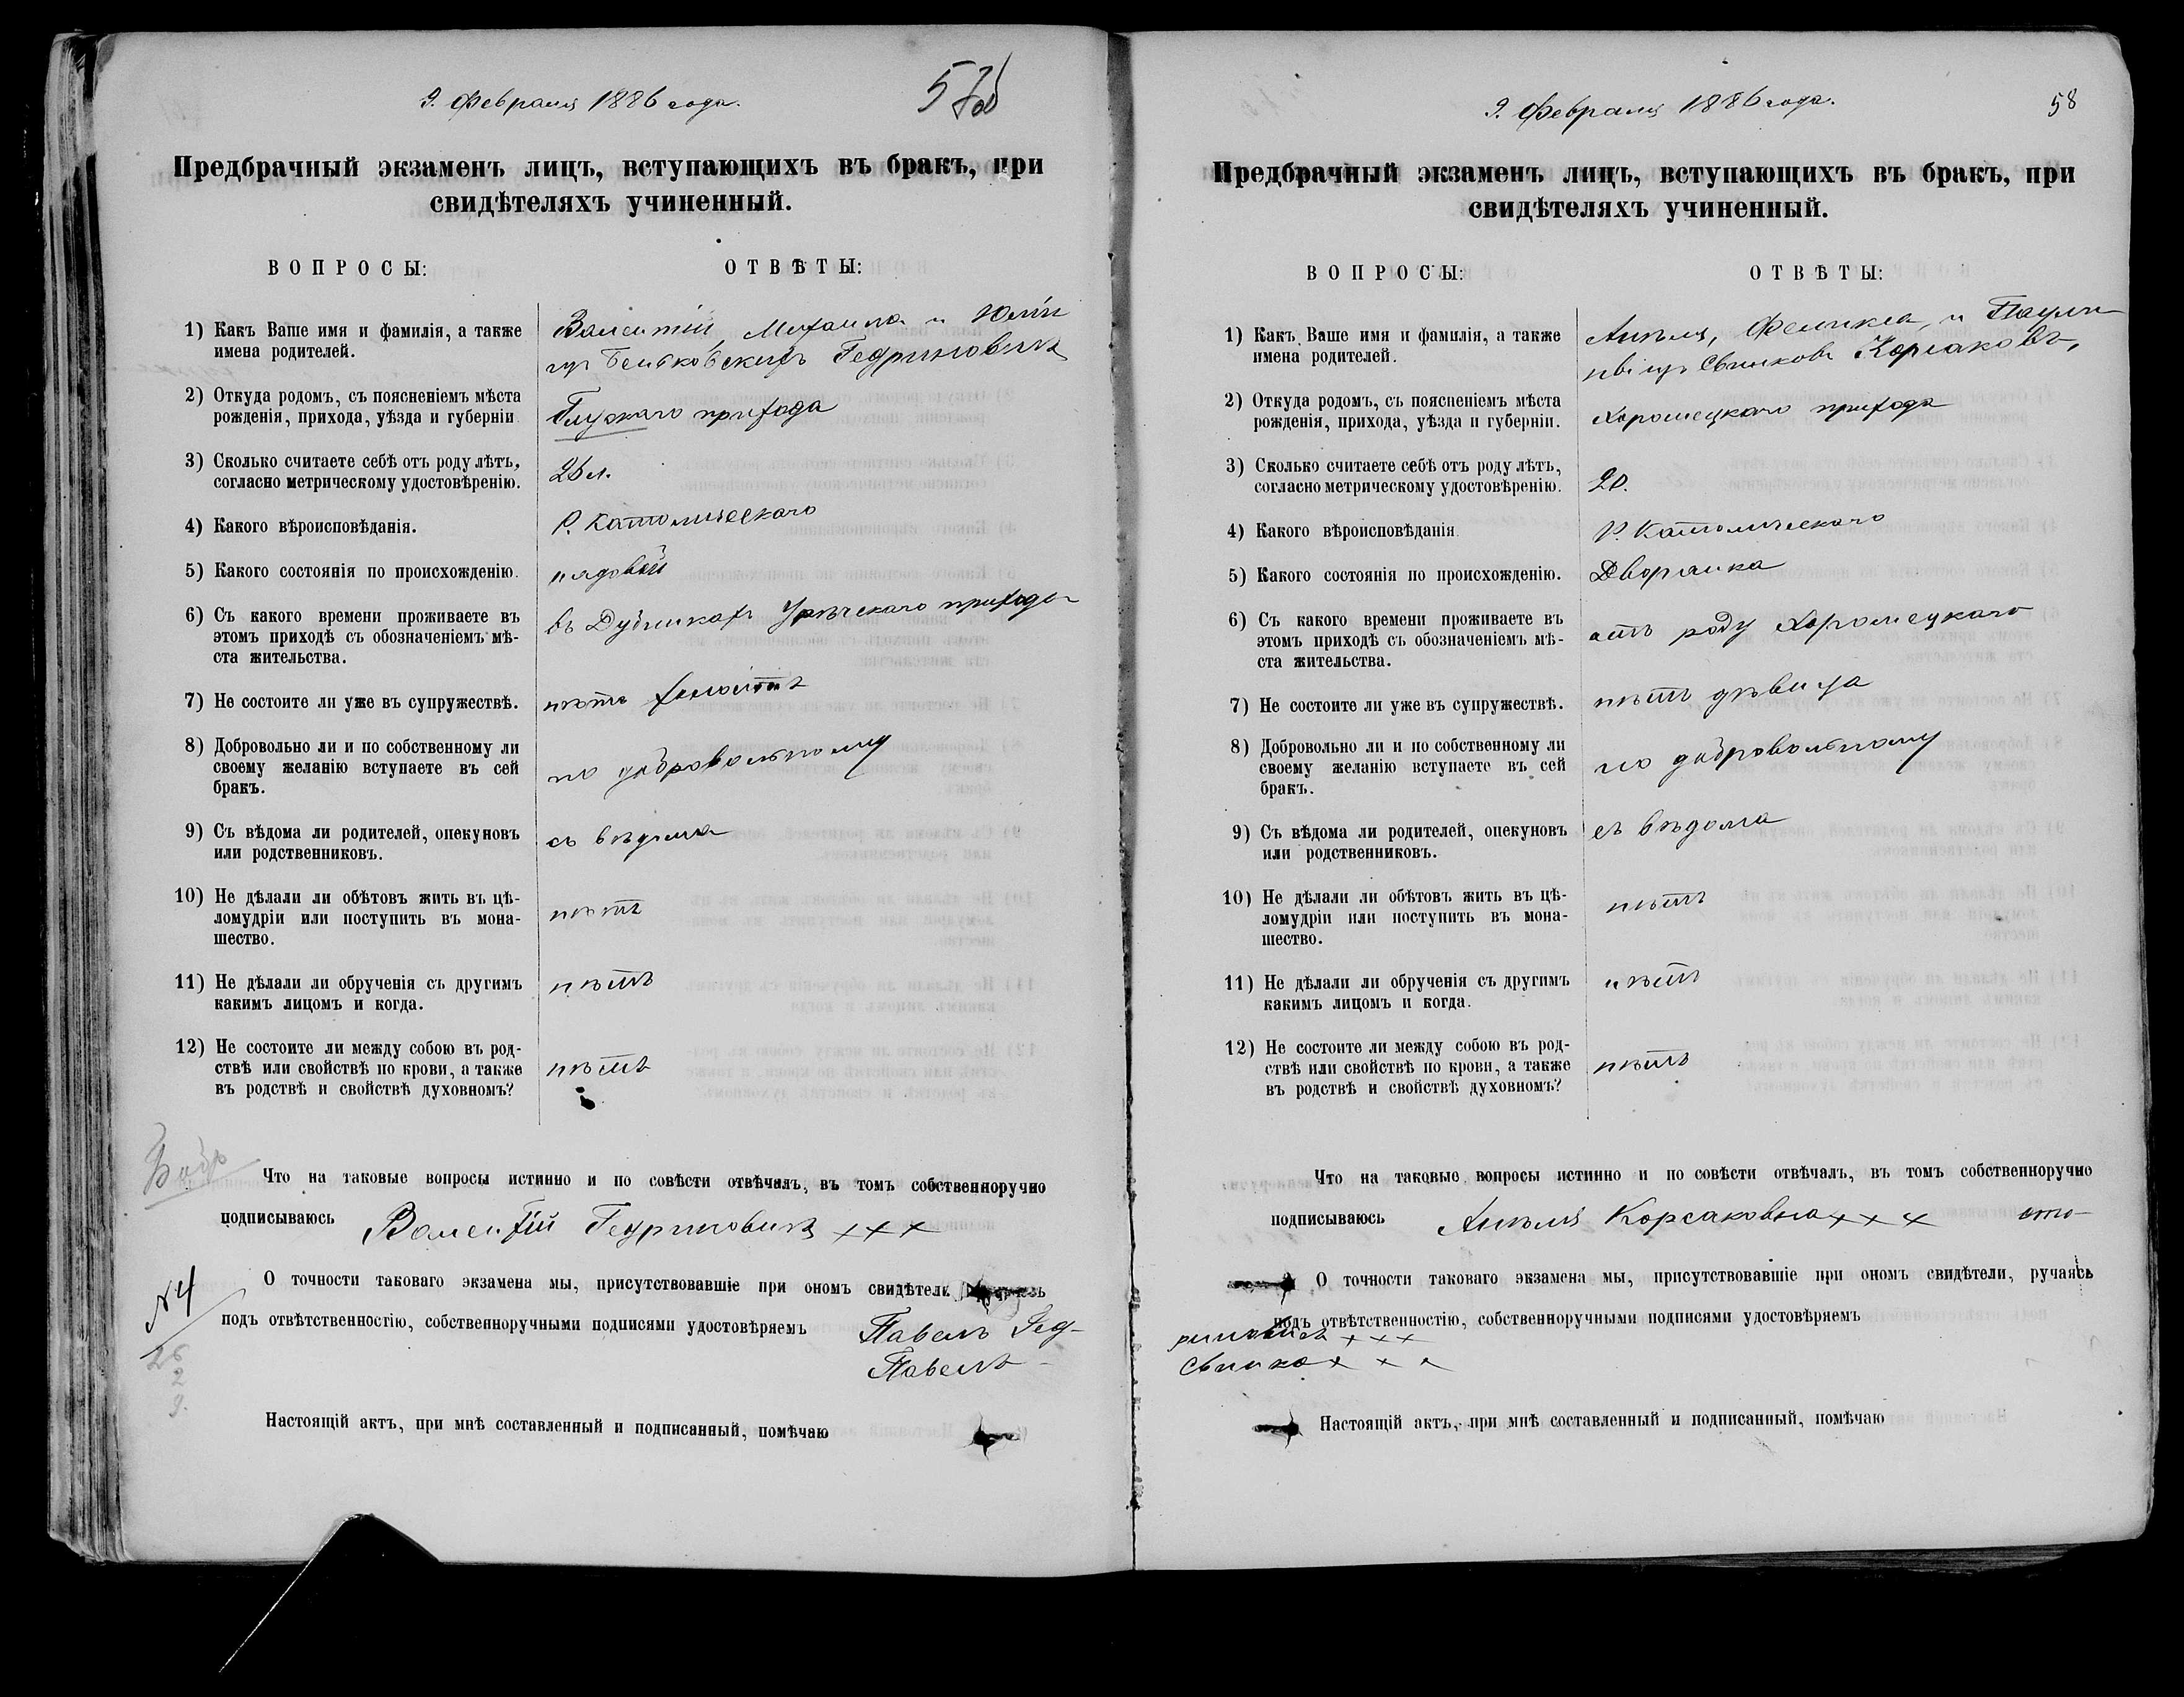 9. Февраля 1886 года.
Предбрачный экзаменъ лицъ, вступающихъ въ бракъ, при
свидѣтеляхъ учиненный.
ВОПРОСЫ:
ОТВѢТЫ:
1) Какъ Ваше имя и фамилія, а также
имена родителей.
Валентій, Михаила и Юліи
изъ Гедриновичъ
2) Откуда родомъ, съ поясненіемъ мѣста
рожденія, прихода, уѣзда и губерніи
Глускаго прихода
3) Сколько считаете себѣ отъ роду лѣтъ,
согласно метрическому удостовѣренію.
26 л.
4) Какого вѣроисповѣданія.
Р. Католическаго
5) Какого состоянія по происхожденію.
рядовый
6) Съ какого времени проживаете въ
этомъ приходѣ съ обозначеніемъ мѣ-
ста жительства.
въ Дубникахъ Урѣчскаго прихода
7) Не состоите ли уже въ супружествѣ.
нѣтъ холостъ
8) Добровольно ли и по собственному ли
своему желанію вступаете въ сей
бракъ.
по добровольному
9) Съ вѣдома ли родителей, опекуновъ
или родственниковъ.
съ вѣдома
10) Не дѣлали ли обѣтовъ жить въ цѣ-
ломудріи или поступить въ мона-
шество.
нѣтъ
11) Не дѣлали ли обрученія съ другимъ
какимъ лицомъ и когда.
нѣтъ
12) Не состоите ли между собою въ род-
ствѣ или свойствѣ по крови, а также
въ родствѣ и свойствѣ духовномъ?
нѣтъ
Что на таковые вопросы истинно и по совѣсти отвѣчалъ, въ томъ собственноручно
подписываюсь Валентій Гедриновичъ +++
№ 4
О точности таковаго экзамена мы, присутствовавшіе при ономъ свидѣтели
подъ отвѣтственностію, собственноручными подписями удостовѣряемъ Павелъ Гед-
Павелъ
26
2
9.
Настоящій актъ, при мнѣ составленный и подписанный, помѣчаю
9. Февраля 1886 года.
58
Предбрачный экзаменъ лицъ, вступающихъ въ бракъ, при
свидѣтеляхъ учиненный.
ВОПРОСЫ:
ОТВѢТЫ:
1) Какъ Ваше имя и фамилія, а также
имена родителей.
Анѣля, Феликса, и Паули-
ны изъ Свинковъ Корсаковъ,
2) Откуда родомъ, съ поясненіемъ мѣста
рожденія, прихода, уѣзда и губерніи.
Хоромецкаго прихода
3) Сколько считаете себѣ отъ роду лѣтъ,
согласно метрическому удостовѣренію.
20.
4) Какого вѣроисповѣданія
Р. Католическаго
5) Какого состоянія по происхожденію.
Дворянка
6) Съ какого времени проживаете въ
этомъ приходѣ съ обозначеніемъ мѣ-
ста жительства.
отъ роду Хоромецкаго
7) Не состоите ли уже въ супружествѣ.
нѣтъ дѣвица
8) Добровольно ли и по собственному ли
своему желанію вступаете въ сей
бракъ.
по добровольному
9) Съ вѣдома ли родителей, опекуновъ
или родственниковъ.
съ вѣдома
10) Не дѣлали ли обѣтовъ жить въ цѣ-
ломудріи или поступить въ мона-
шество.
нѣтъ
11) Не дѣлали ли обрученія съ другимъ
какимъ лицомъ и когда.
нѣтъ
12) Не состоите ли между собою въ род-
ствѣ или свойствѣ по крови, а также
въ родствѣ и свойствѣ духовномъ?
нѣтъ
Что на таковые вопросы истинно и по совѣсти отвѣчалъ, въ томъ собственноручно
подписываюсь Анѣля Корсаковна +++
О точности таковаго экзамена мы, присутствовавшіе при ономъ свидѣтели, ручаясь
подъ отвѣтственностію, собственноручными подписями удостовѣряемъ
риновичъ +++
Свинко +++
Настоящій актъ, при мнѣ составленный и подписанный, помѣчаю